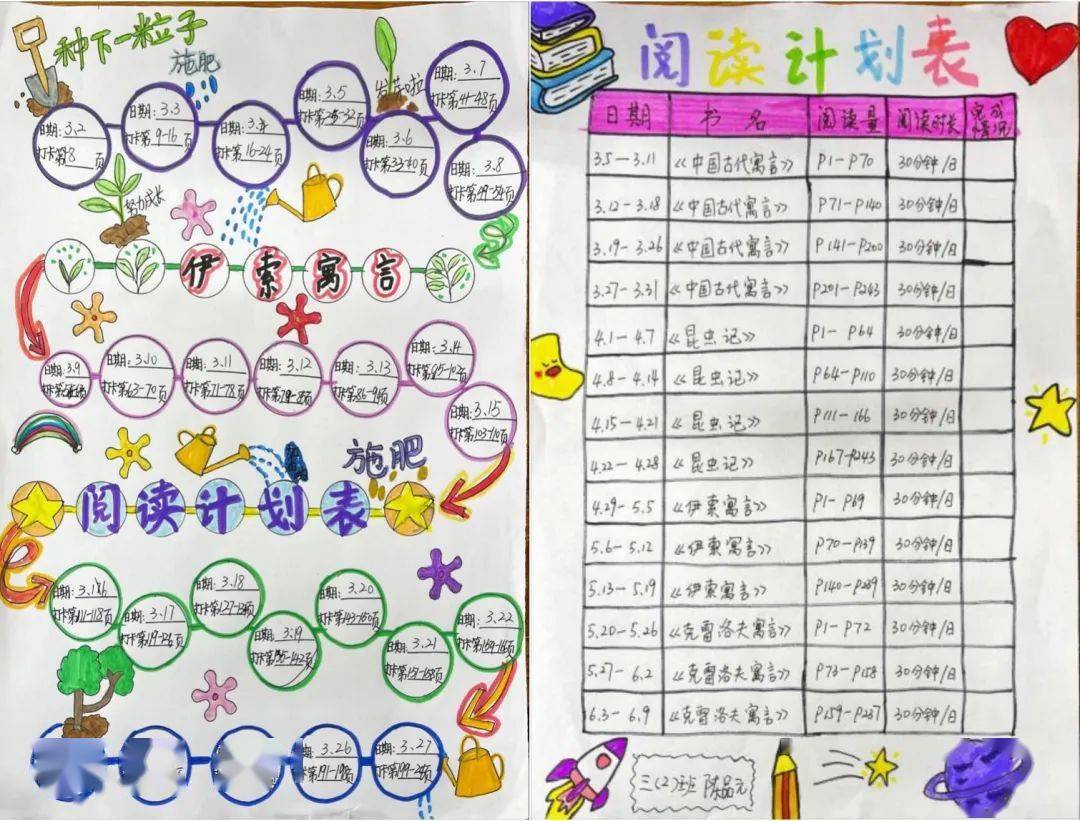 种下一粒子
施肥
发芽啦
日期: 3.2
打卡第1-8页
日期: 3.3
打卡第9-16页
日期: 3.4
打卡第16-24页
日期: 3.5
打卡第25-32页
日期: 3.6
打卡第33-40页
日期: 3.7
打卡第41-48页
日期: 3.8
打卡第49-54页
努力成长
伊索寓言
日期: 3.9
日期: 3.10
打卡第63-70页
日期: 3.11
打卡第71-78页
日期: 3.12
日期: 3.13
打卡第86-94页
日期: 3.14
打卡第95-102页
日期: 3.15
打卡第103-110页
施肥
阅读计划表
日期: 3.16
打卡第111-118页
日期: 3.17
打卡第119-126页
日期: 3.18
日期: 3.19
日期: 3.20
日期: 3.21
日期: 3.22
日期: 3.26
日期: 3.27
阅读计划表
日期 书名 阅读量 阅读时长 完成情况
3.5-3.11 《中国古代寓言》 P1-P70 30分钟/日
3.12-3.18 《中国古代寓言》 P71-P140 30分钟/日
3.19-3.26 《中国古代寓言》 P141-P200 30分钟/日
3.27-3.31 《中国古代寓言》 P201-P243 30分钟/日
4.1-4.7 《昆虫记》 P1-P64 30分钟/日
4.8-4.14 《昆虫记》 P64-P110 30分钟/日
4.15-4.21 《昆虫记》 P111-166 30分钟/日
4.22-4.28 《昆虫记》 P167-P243 30分钟/日
4.29-5.5 《伊索寓言》 P1-P69 30分钟/日
5.6-5.12 《伊索寓言》 P70-P139 30分钟/日
5.13-5.19 《伊索寓言》 P140-P289 30分钟/日
5.20-5.26 《克雷洛夫寓言》 P1-P72 30分钟/日
5.27-6.2 《克雷洛夫寓言》 P73-P158 30分钟/日
6.3-6.9 《克雷洛夫寓言》 P159-P237 30分钟/日
三(2)班 陈品元